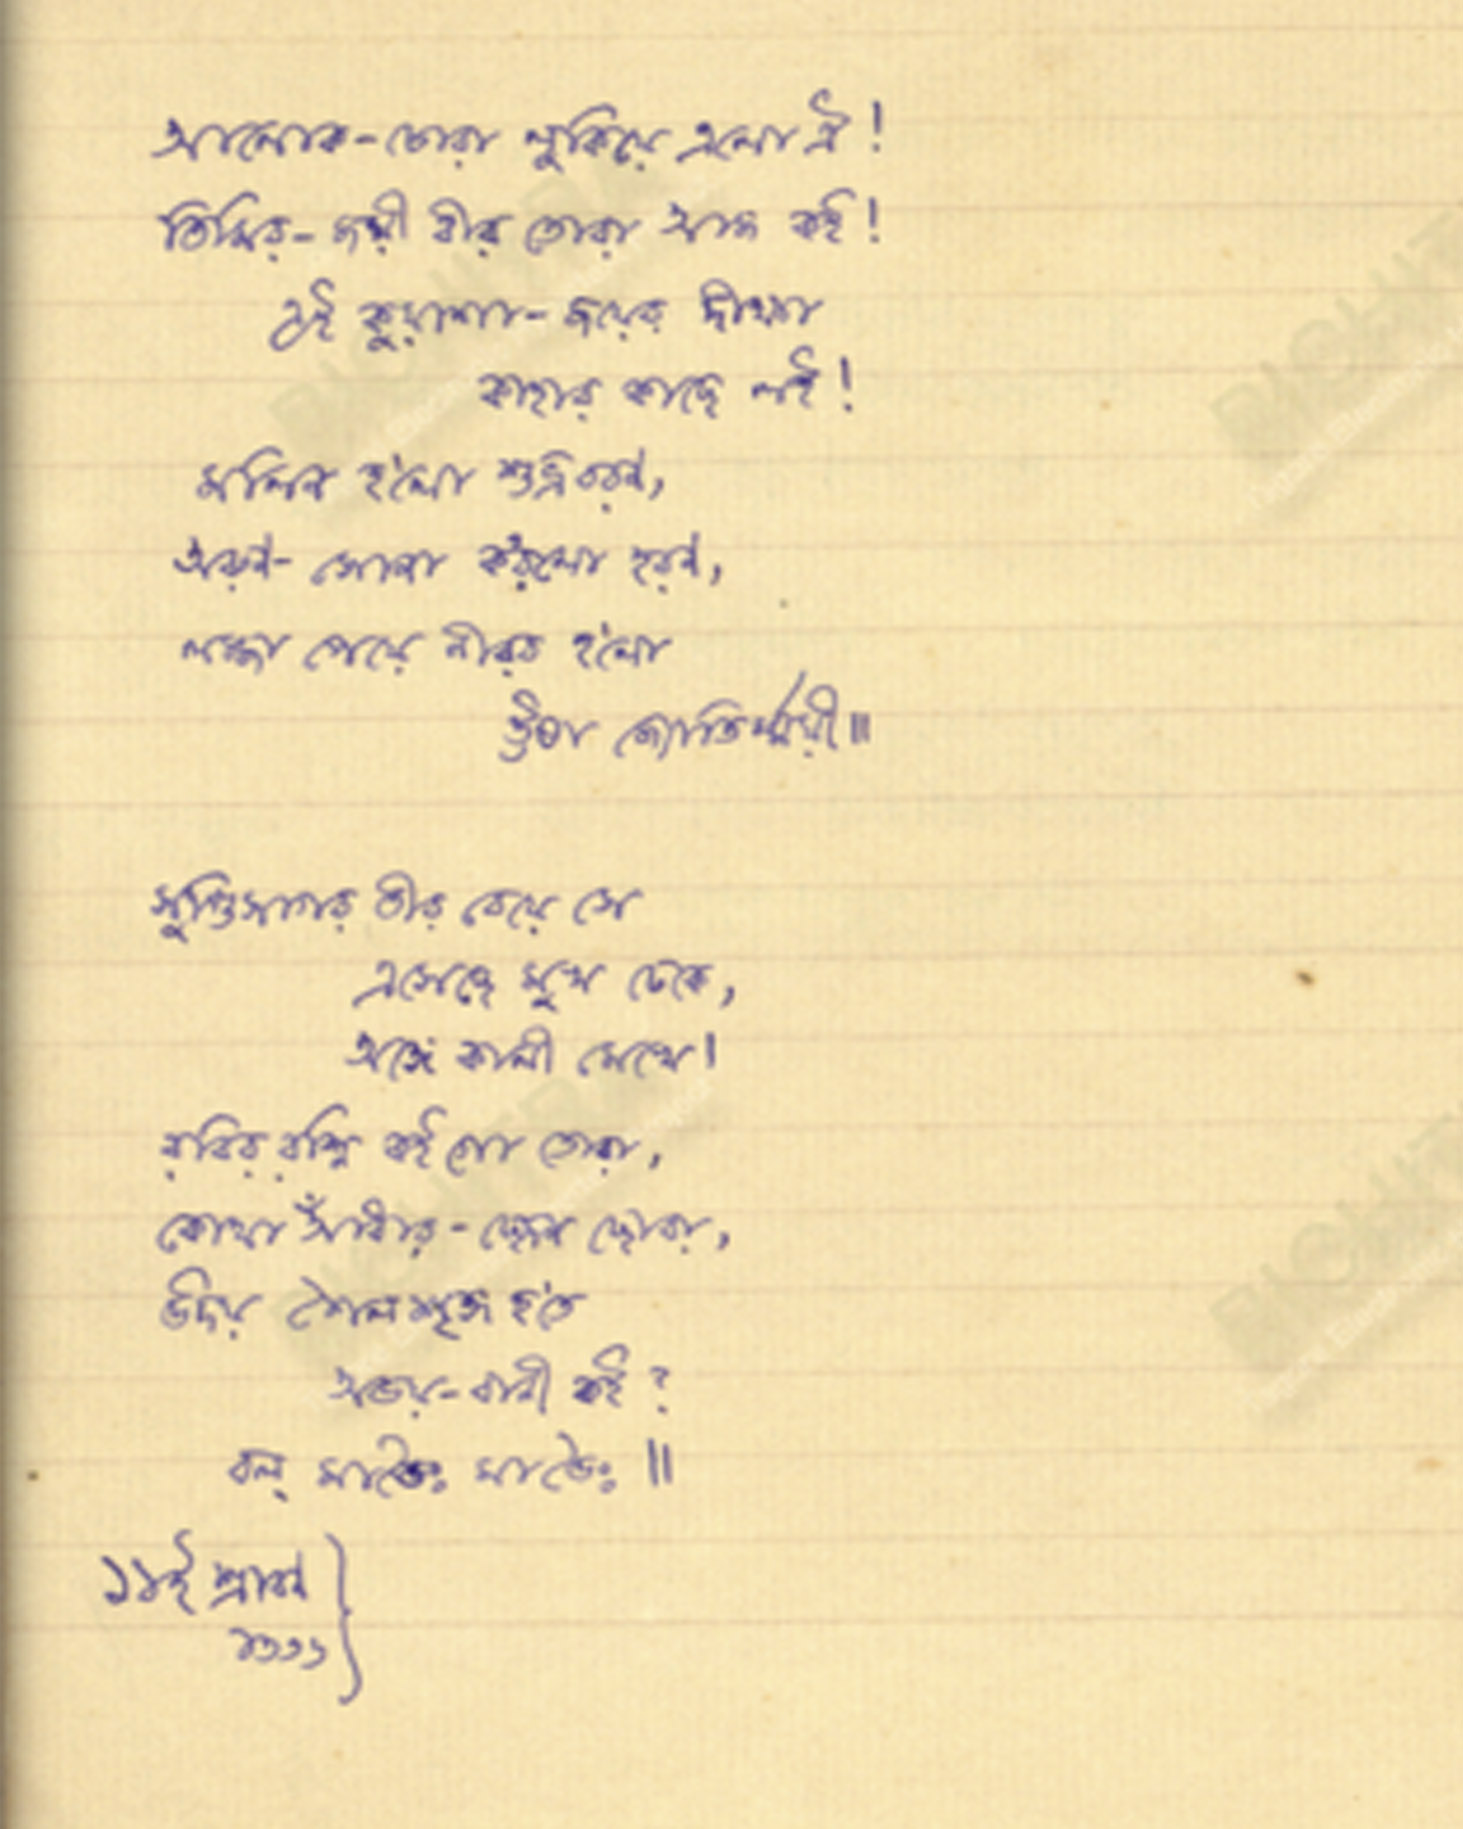 আলোক-চোরা লুকিয়ে এলো ঐ!
তিমির-জয়ী বীর তোরা আজ কই!
এই কুয়াশা-জয়ের দীক্ষা
কাহার কাছে লই!
মলিন হ'লো শুভ্রবরণ,
অরুণ-সোনা ক'রলো হরণ,
লজ্জা পেয়ে নীরব হ'লো
ঊষা জ্যোতির্ম্ময়ী॥
সুপ্তিসাগর তীর বেয়ে সে
এসেছে মুখ ঢেকে,
অঙ্গে কালী মেখে।
রবির রশ্মি কই গো তোরা,
কোথা আঁধার-ছেদন ছোরা,
উদয় শৈলশৃঙ্গ হ'তে
অভয়-বাণী কই?
বল্ মাভৈঃ মাভৈঃ॥
১১ই শ্রাবণ